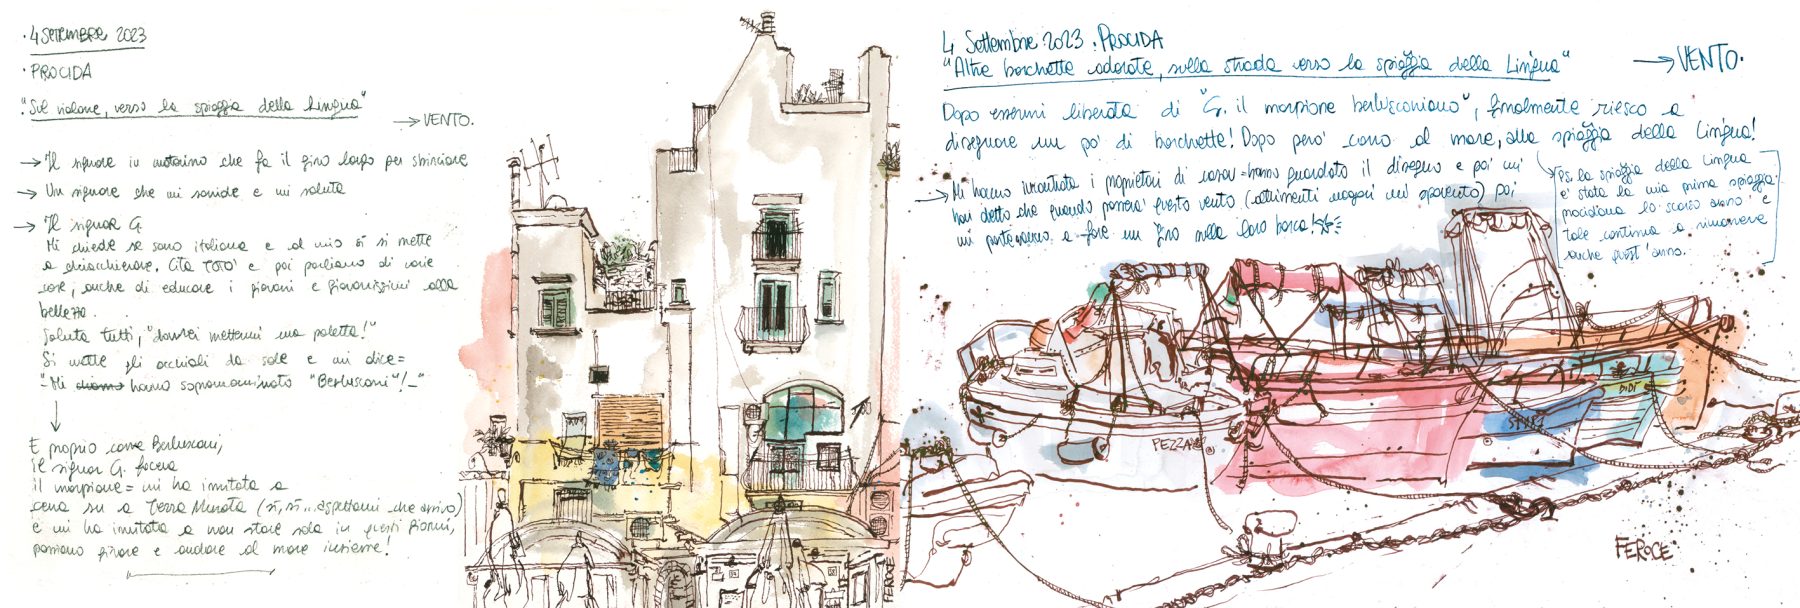 · 4 SETTEMBRE 2023
· PROCIDA
"Sul violone, verso la spiaggia della Lingua"
→ VENTO.
→ Il signore in motorino che fa il giro largo per sbirciare
→ Un signore che mi sorride e mi saluta
→ Il signor G
Mi chiede se sono italiana e al mio sì si mette
a chiacchierare. Cita TOTO' e poi parliamo di varie
cose, anche di educare i giovani e giovanissimi alla
bellezza.
Saluta tutti, "dovrei mettermi una paletta!"
Si mette gli occhiali da sole e mi dice=
"-Mi chiamo hanno soprannominato "Berlusconi"!-"
E proprio come Berlusconi,
il signor G. faceva
il marpione= mi ha invitata a
cena su a Terra Murata (sì, sì... aspettami che arrivo)
e mi ha invitata a non stare sola in questi giorni,
possiamo girare e andare al mare insieme!
FEROCE
4 Settembre 2023 . PROCIDA
"Altre barchette adorate, sulla strada verso la spiaggia della Lingua"
→ VENTO.
Dopo essermi liberata di "G. il marpione berlusconiano", finalmente riesco a
disegnare un po' di barchette! Dopo però corro al mare, alla spiaggia della Lingua!
→ Mi hanno incontrata i proprietari di =hanno guardato il disegno e poi mi
han detto che quando passerà questo vento (altrimenti magari mi spavento) poi
mi porteranno a fare un giro nella loro barca!
Ps. la spiaggia della Lingua
e' stata la mia prima spiaggia
procidana lo scorso anno e
tale continua a rimanere
anche quest'anno.
PEZZA
DIDÌ
FEROCE